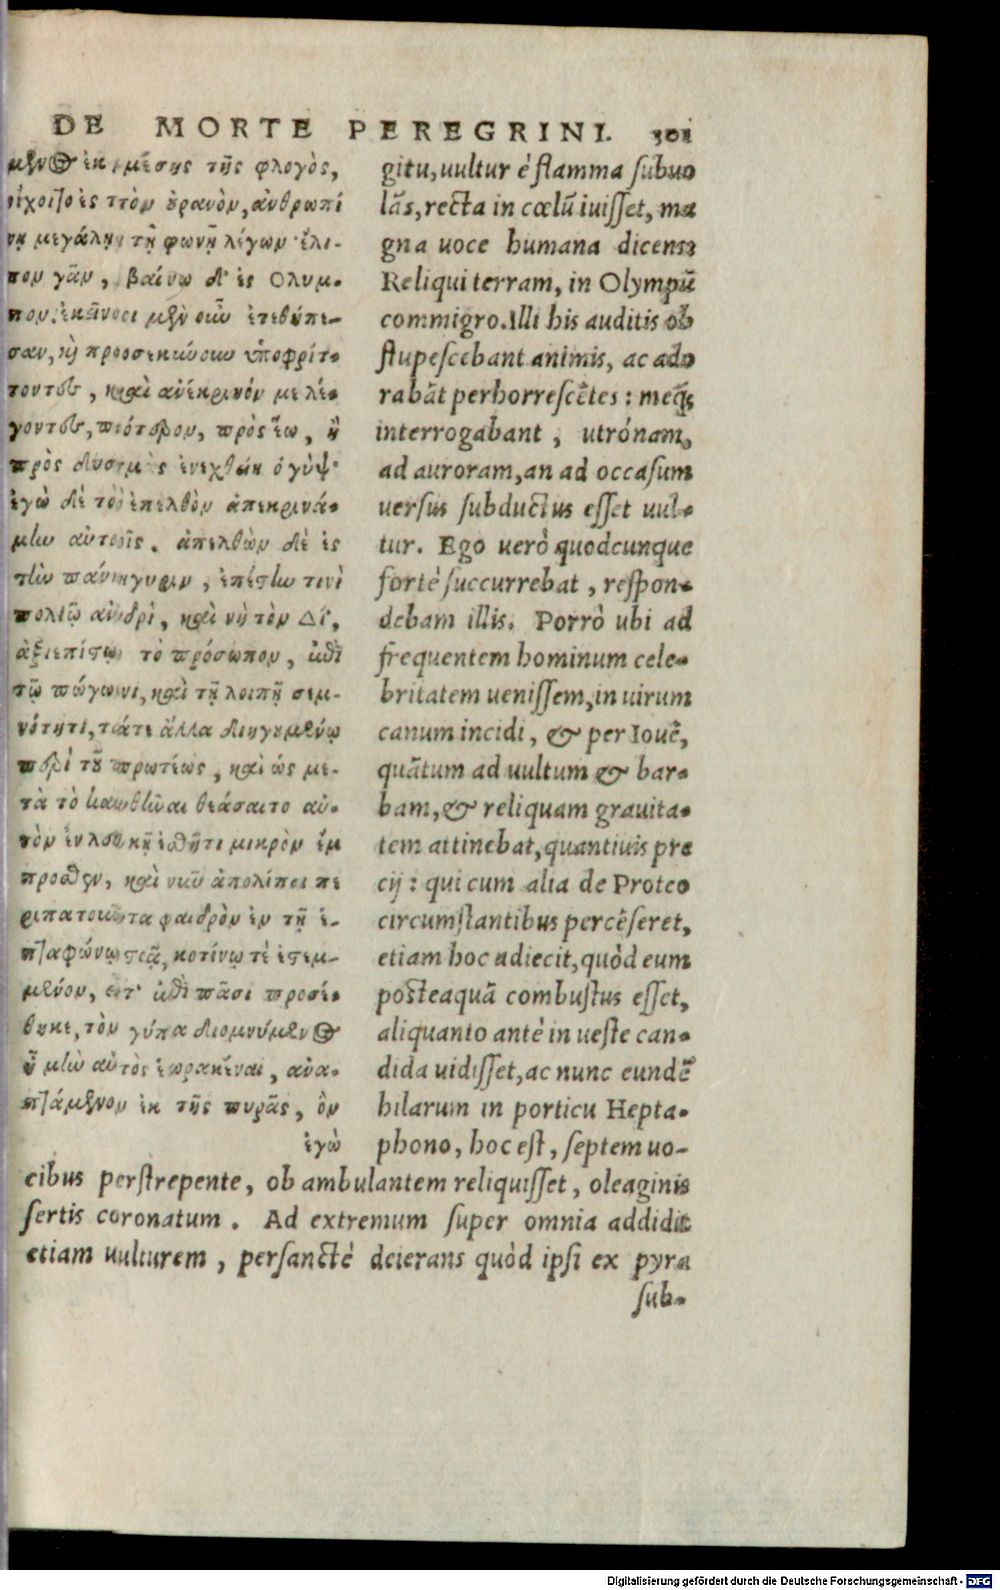 DE MORTE PEREGRINI. 301
μεν(ος) ἐκ μέσης τῆς φλογὸς,
οἴχοιτο ἐς τὸν οὐρανὸν, ἀνθρωπί
νῃ μεγάλῃ τῇ φωνῇ λέγων· ἔλι-
πον γᾶν, βαίνω δ' ἐς Ολυμ-
πον. ἐκεῖνοι μὲν οὖν ἐτεθήπε-
σαν, καὶ προσεκύνουν ὑποφρίτ-
τοντες, καὶ ἀνέκρινόν με λέ-
γοντες, πότερον, πρὸς ἕω, ἢ
πρὸς δυσμὰς ἐνεχθείη ὁ γύψ·
ἐγὼ δὲ τὸ ἐπελθὸν ἀπεκρινά-
μην αὐτοῖς. ἀπελθὼν δὲ ἐς
τὴν πανήγυριν, ἐπέστην τινὶ
πολιῷ ἀνδρὶ, καὶ νὴ τὸν Δί',
ἀξιοπίστῳ τὸ πρόσωπον, ἐπὶ
τῷ πώγωνι, καὶ τῇ λοιπῇ σεμ-
νότητι, τά τε ἄλλα διηγουμένῳ
περὶ τοῦ πρωτέως, καὶ ὡς με-
τὰ τὸ καυθῆναι θεάσαιτο αὐ-
τὸν ἐν λευκῇ ἐσθῆτι μικρὸν ἔμ
προσθεν, καὶ νῦν ἀπολίποι πε
ριπατοῦντα φαιδρὸν ἐν τῇ ἑ-
πταφώνῳ στοᾷ, κοτίνῳ τε ἐστεμ-
μένον, εἶτ' ἐπὶ πᾶσι προσέ-
θηκε, τὸν γύπα διομνύμεν(ος)
ἦ μὴν αὐτὸς ἑωρακέναι, ἀνα-
πτάμενον ἐκ τῆς πυρᾶς, ὃν
ἐγὼ
gitu, uultur è flamma subuo
lās, recta in cœlū iuisset, ma
gna uoce humana dicens
Reliqui terram, in Olympū
commigro. Illi his auditis ob
stupescebant animis, ac ado
rabāt perhorrescētes: meq́;
interrogabant, utrónam,
ad auroram, an ad occasum
uersus subductus esset uul-
tur. Ego uerò quodcunque
fortè succurrebat, respon-
debam illis. Porrò ubi ad
frequentem hominum cele-
britatem uenissem, in uirum
canum incidi, & per Iouē,
quātum ad uultum & bar-
bam, & reliquam grauita-
tem attinebat, quantiuis pre
cij: qui cum alia de Proteo
circumstantibus percēseret,
etiam hoc adiecit, quòd eum
posteaquā combustus esset,
aliquanto antè in ueste can-
dida uidisset, ac nunc eundē
hilarum in porticu Hepta-
phono, hoc est, septem uo-
cibus perstrepente, ob ambulantem reliquisset, oleaginis
sertis coronatum. Ad extremum super omnia addidit
etiam uulturem, persanctè deierans quòd ipsi ex pyra
sub-
Digitalisierung gefördert durch die Deutsche Forschungsgemeinschaft - DFG